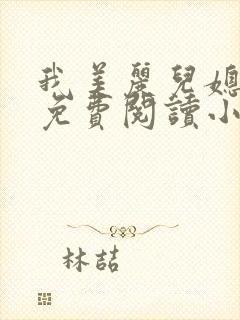 我美麗兒媳
免費閱讀小
林喆